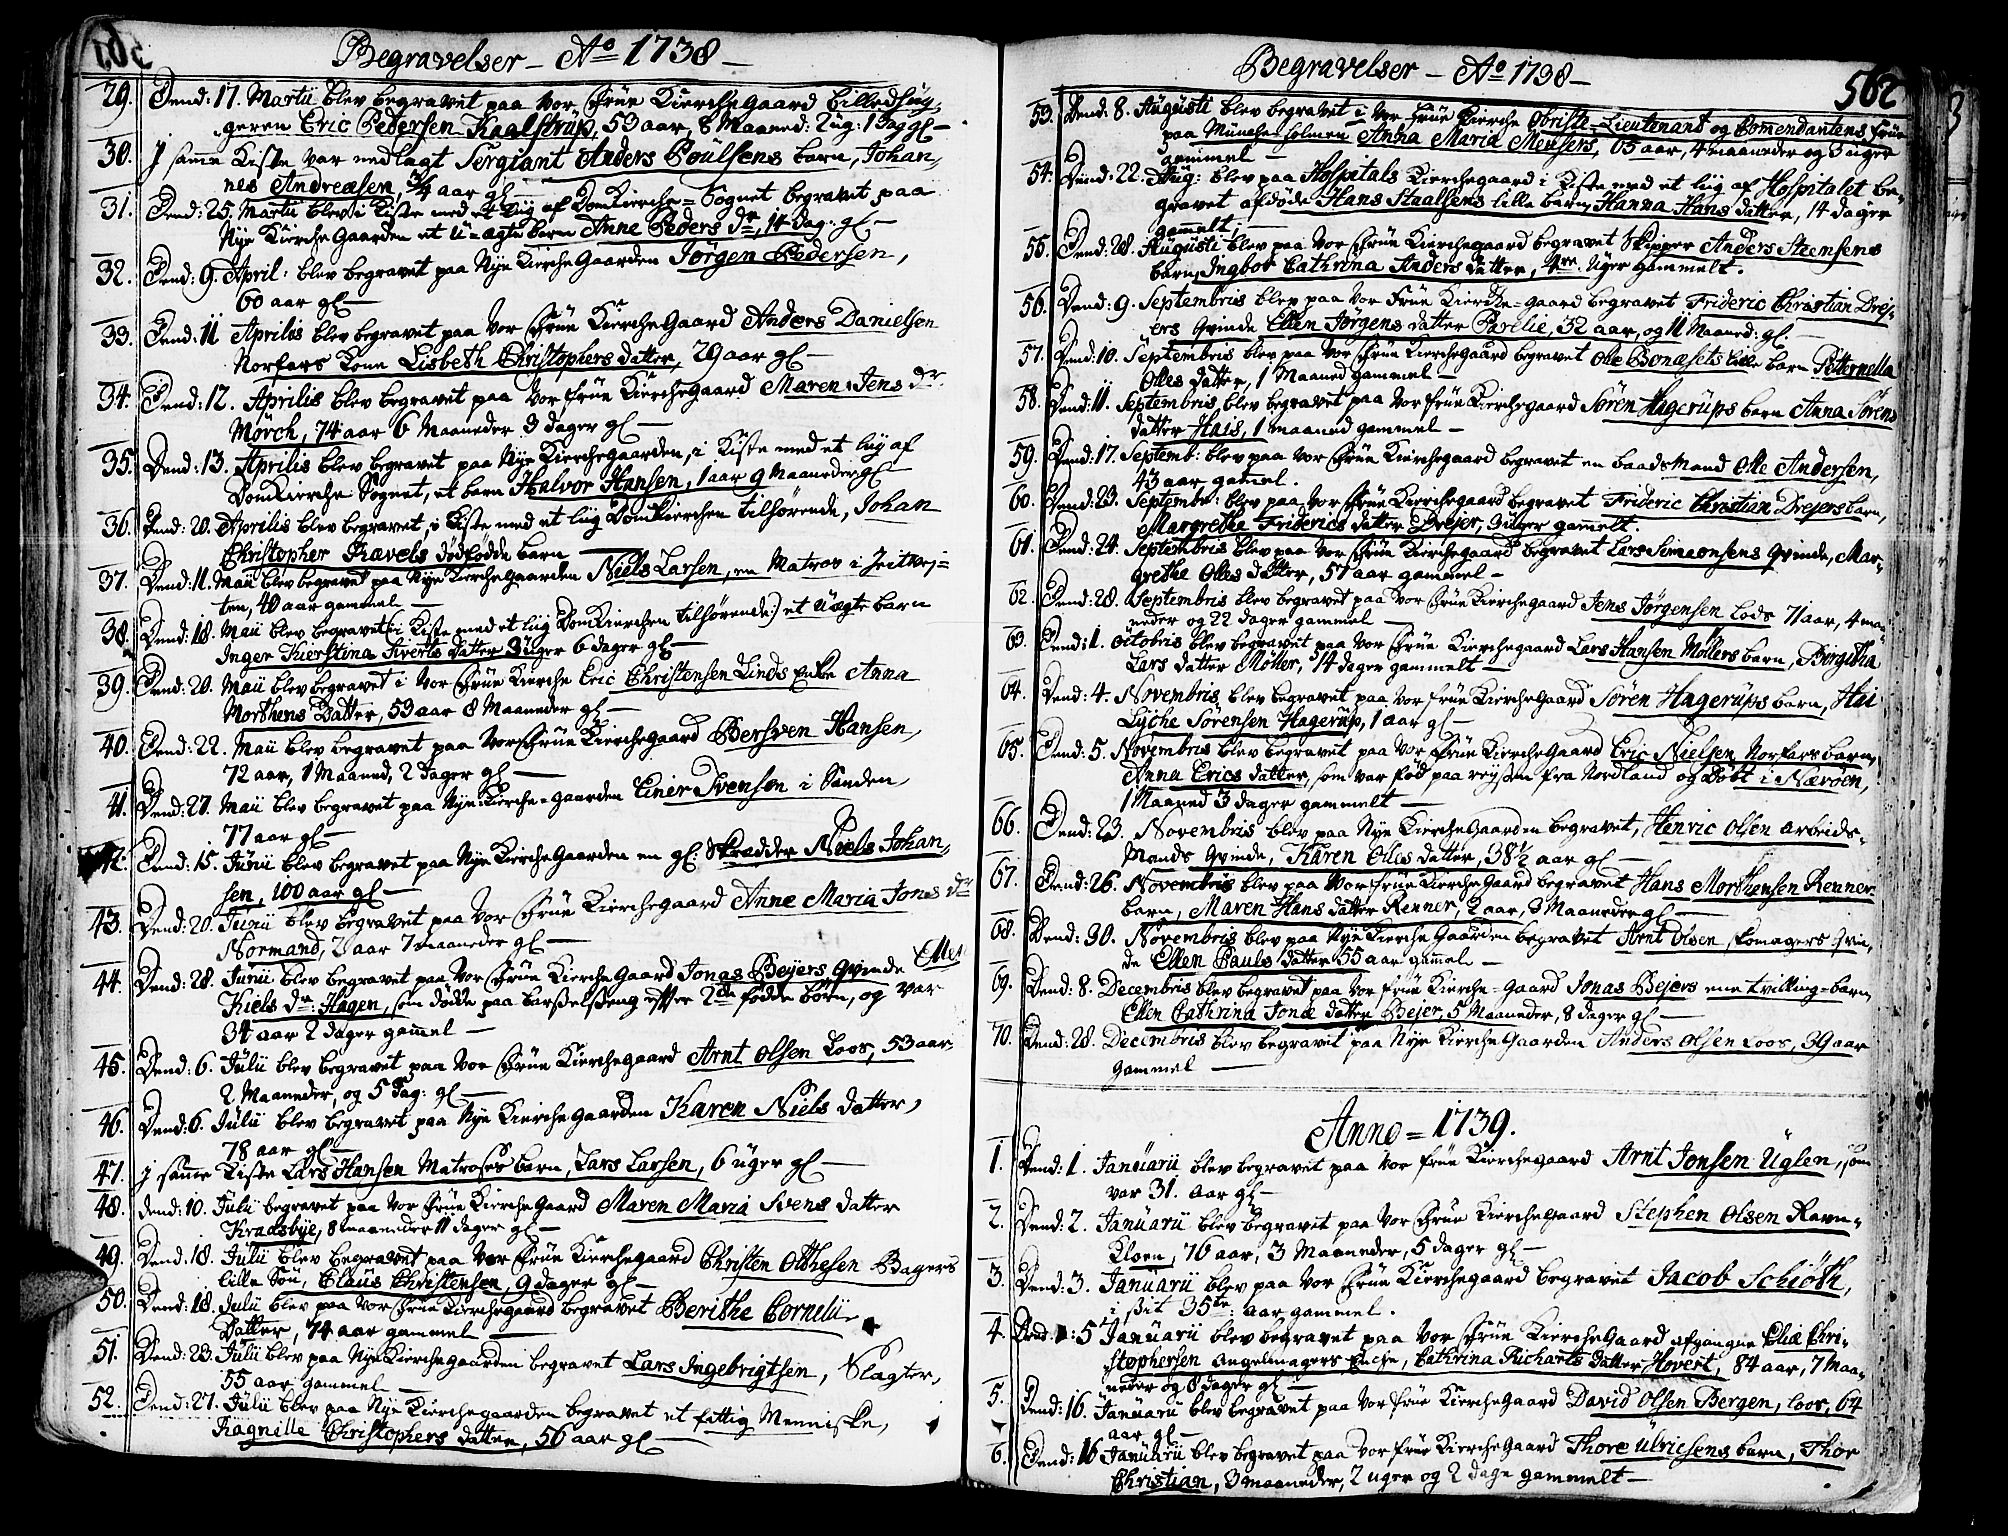 Begravelser – Aº 1738 –
29. Dend: 17. Martii blev begravet paa Vor Frue Kierche Gaard billedhug-
geren Eric Pedersen Kaalstrup, 53 aar, 8 Maaned: 2 ug: 1 dag gl –
30. J samme Kiste var nedlagt Sergiant Anders Poulsens barn, Johan-
nes Andreæsen, 3/4 aar gl –
31. Dend: 25. Martii blev i Kiste med et liig af DomKierche-Sognet begravet paa
Nye Kierche Gaarden et u-ægte barn Anne Peders dr, 14 dag: gl –
32. Dend: 9. April: blev begravet paa Nye Kierche Gaarden Jørgen Pedersen,
60 aar gl –
33. Dend: 11 Aprilis blev begravet paa Vor Frue Kierche Gaard Anders Danielsen
Norfars Kone Lisbeth Christophers datter, 29 aar gl –
34. Dend: 12. Aprilis blev begravet paa Vor Frue Kierchegaard Maren Jens dr.
Mørch, 74 aar 6 Maaneder 3 dager gl –
35. Dend: 13. Aprilis blev begravet paa Nye Kierchegaarden, i Kiste med et liig af
DomKierche Sognet, et barn Halvor Hansen, 1 aar 9 Maaneder gl –
36. Dend: 20. Aprilis blev begravet, i Kiste med et liig Domkierchen tilhørende, Johan
Christopher Rævels dødfødde barn –
37. Dend: 11. Maii blev begravet paa Nye Kierche Gaarden Niels Larsen, en Matros i
ten, 40 aar gammel –
38. Dend: 18. Maii blev begravet (i Kiste med et liig Domkierchen tilhørende) et uægte barn
Inger Kierstina Siverts datter 3 uger 6 dager gl –
39. Dend: 20. Maii blev begravet i Vor Frue Kierche Eric Christensen Linds Enke Anna
Morthens Datter, 53 aar 8 Maaneder gl –
40. Dend: 22. Maii blev begravet paa Vor Frue Kierchegaard Bersven Hansen,
72 aar, 1 Maaned, 2 dager gl –
41. Dend: 27. Maii blev begravet paa Nye Kierche-gaarden Einer Svensen i Sanden,
77 aar gl –
42. Dend: 15. Junii blev begravet paa Nye Kierche Gaarden en gl: Skradder Niels Johan-
sen, 100 aar gl –
43. Dend: 20. Junii blev begravet paa Vor Frue Kierchegaard Anne Maria Jonas dr
Normand, 2 aar 7 maaneder gl –
44. Dend: 28. Junii blev begravet paa Vor Frue Kierche Gaard Jonas Beijers Qvinde Ellen
Kiels dr: Hagen, som dødde paa barselseng efter 2de fødde børn, og var
34 aar 2 dager gammel –
45. Dend: 6. Julii blev begravet paa Vor Frue Kierchegaard Arnt Olsen Loos, 53 aar
2 Maaneder, og 5 dag: gl –
46. Dend: 6. Julii blev begravet paa Nye Kierche Gaarden Karen Niels datter,
78 aar gl –
47. J samme Kiste Lars Hansen Matroses barn, Lars Larsen, 6 uger gl –
48. dend: 10. Julii begravet paa Vor Frue Kierche Gaard Maren Maria Svens datter
Kradsbye, 8 maaneder 11 dager gl –
49. Dend: 18. Julii blev begravet paa Vor Frue Kierchegaard Christen Othesen Bagers
lille Søn, Claus Christensen, 9 dager gl –
50. Dend: 18. Julii blev paa Vor Frue Kierchegaard begravet Berithe Cornelii
Datter, 74 aar gammel –
51. Dend: 23. Julii blev paa Nye Kierchegaarden begravet Lars Ingebrigtsen, Slagter,
55 aar gammel –
52. Dend: 27. Julii blev paa Nye Kierchegaarden begravet et fattig Menniske,
Ragnille Christophers datter, 56 aar gl –
Begravelser – Aº 1738 –
562
53. Dend: 8. Augusti blev begravet i Vor Frue Kierche Obriste-Lieutenant og Comendantens Frue
paa Munche-holmen Anna Maria Meusers, 65 aar, 4 maaneder og 3 uger
gammel –
54. Dend: 22. Aug: blev paa Hospitals Kierchegaard i Kiste med et liig af Hospitalet be-
gravet afdøde Hans Staalsens lille barn Hanna Hans datter, 14 dager
gammelt, –
55. Dend: 28. Augusti blev paa Vor Frue Kierchegaard begravet Skipper Anders Steensens
barn, Ingbor Cathrina Anders datter, 4re. Uger gammelt.
56. Dend: 9. Septembris blev paa Vor Frue Kierche-gaard begravet Frideric Christian Drej-
ers Qvinde Ellen Jørgens datter Parelie, 32 aar, og 11 Maaned: gl. –
57. Dend: 10. Septembris blev paa Vor Frue Kierchegaard begravet Olle Bonæsets lille barn Pitternella
Olles datter, 1 Maaned gammel –
58. Dend: 11. Septembris blev begravet paa Vor Frue Kierchegaard Søren Hagerups barn Anna Sørens
datter Hais, 1 maaned gammel –
59. Dend: 17. Septemb: blev paa Vor Frue Kierchegaard begravet en baadsMand Olle Andersen,
43 aar gamel.
60. Dend: 23. Septembr: blev paa Vor Frue Kierchegaard begravet Frideric Christian Drejers barn,
Margrethe Friderics datter Drejer, 3 uger gammelt.
61. Dend: 24. Septembris blev paa Vor Frue Kierchegaard begravet Lars Simonsens Qvinde, Mar-
grethe Olles datter, 57 aar gammel –
62. Dend: 28. Septembris blev begravet paa Vor Frue Kierchegaard Jens Jørgensen Lods 71 aar, 4 ma-
neder og 22 dager gammel –
63. Dend: 1. Octobris blev begravet paa Vor Frue Kierchegaard Lars Hansen Møllers barn, Borgitha
Lars datter Møller, 14 dager gammelt –
64. Dend: 4. Novembris blev begravet paa Vor Frue Kierche Gaard Søren Hagerups barn, Hai
Lyche Sørensen Hagerup, 1 aar gl –
65. Dend: 5. Novembris blev begravet paa Vor Frue Kierche Gaard Eric Nielsen Norfars barn,
Anna Erics datter, som var fød paa reyssen fra Nordland og døbt i Nærøen,
1 Maaned 3 dager gammelt –
66. Dend: 23. Novembris blev paa Nye Kierche Gaarden begravet, Henric Olsen arbeids-
Mands Qvinde, Karen Olles datter, 38½ aar gl –
67. Dend: 26. Novembris blev paa Vor Frue Kierche Gaard begravet Hans Morthensen Renner
barn, Maren Hans datter Renner, 2 aar, 3 Maaneder gl –
68. Dend: 30. Novembris blev paa Nye Kierche Gaarden begravet Arnt Olsen skomagers Qvin-
de Ellen Pauls datter 55 aar gammel –
69. Dend: 8. Decembris blev begravet paa Vor Frue Kierche-Gaard Jonas Bejers ene tvilling-barn
Ellen Cathrina Jonæ datter Bejer, 5 Maaneder, 8 dager gl –
70. Dend: 28. Decembris blev begravet paa Nye Kierche Gaarden Anders Olsen Loos, 39 aar
gammel –
Anno = 1739.
1. Dend: 1. Januarii blev begravet paa Vor Frue Kierchegaard Arnt Jonsen Uglen, som
var 31. aar gl –
2. Dend: 2. Januarii blev begravet paa Vor Frue Kierchegaard Stephen Olsen Ravn-
Kloen, 76 aar, 3 Maaneder, 5 dager gl –
3. Dend: 3. Januarii blev paa Vor Frue Kierchegaard begravet Jacob Schiøth,
i sit 35te. aar gammel.
4. Dend: 5 Januarii blev begravet paa Vor Frue Kierche Gaard afgangne Eliæ Chri-
stophersen Angelmagers Enche, Cathrina Richarts datter Hovert, 84 aar, 7 Maa-
neder og 8 dager gl –
5. Dend: 16. Januarii blev begravet paa Vor Frue Kierche Gaard David Olsen Bergen, Loos, 64
aar gl –
6. Dend: 16 Januarii blev begravet paa Vor Frue Kierche Gaard Thore Ulricsens barn, Thor
Christian, 3 maaneder, 2 uger og 2 dage gammelt –